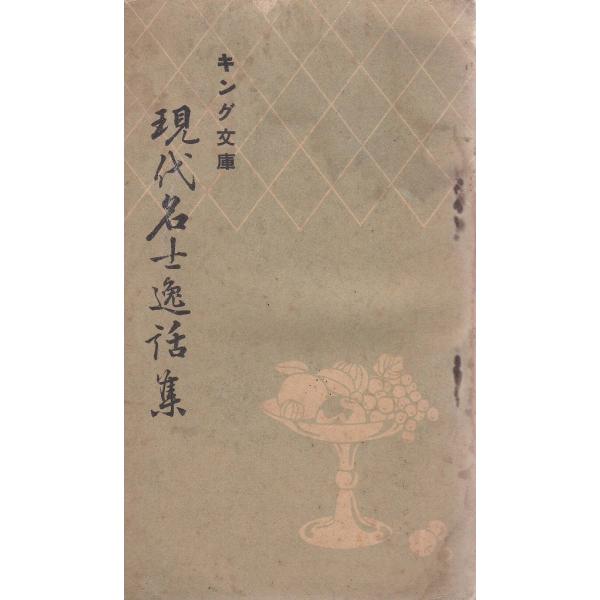 キング文庫
現代名士逸話集